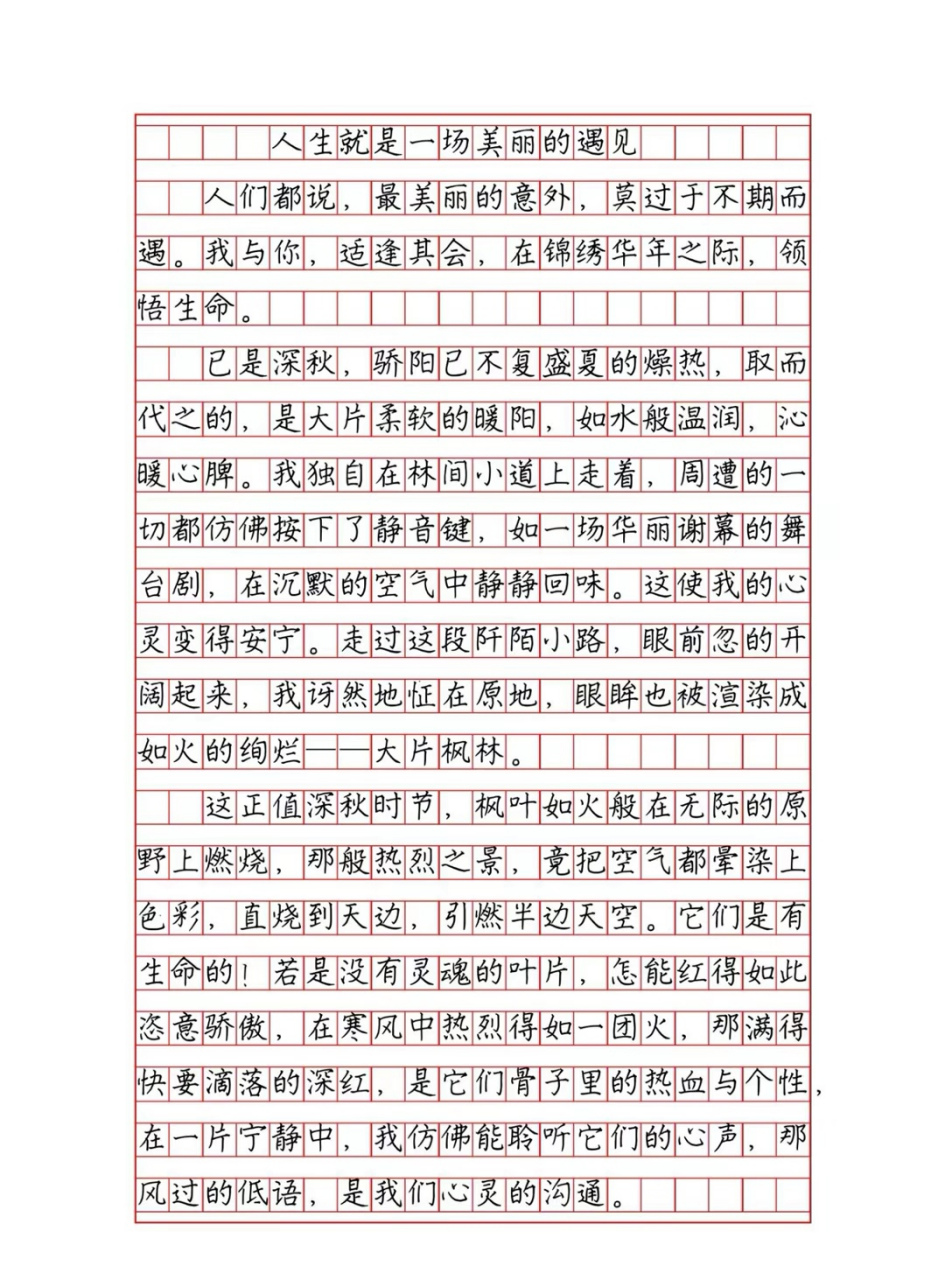 人生就是一场美丽的遇见
人们都说，最美丽的意外，莫过于不期而
遇。我与你，适逢其会，在锦绣华年之际，领
悟生命。
已是深秋，骄阳已不复盛夏的燥热，取而
代之的，是大片柔软的暖阳，如水般温润，沁
暖心脾。我独自在林间小道上走着，周遭的一
切都仿佛按下了静音键，如一场华丽谢幕的舞
台剧，在沉默的空气中静静回味。这使我的心
灵变得安宁。走过这段阡陌小路，眼前忽的开
阔起来，我讶然地怔在原地，眼眸也被渲染成
如火的绚烂——大片枫林。
这正值深秋时节，枫叶如火般在无际的原
野上燃烧，那般热烈之景，竟把空气都晕染上
色彩，直烧到天边，引燃半边天空。它们是有
生命的！若是没有灵魂的叶片，怎能红得如此
恣意骄傲，在寒风中热烈得如一团火，那满得
快要滴落的深红，是它们骨子里的热血与个性，
在一片宁静中，我仿佛能聆听它们的心声，那
风过的低语，是我们心灵的沟通。